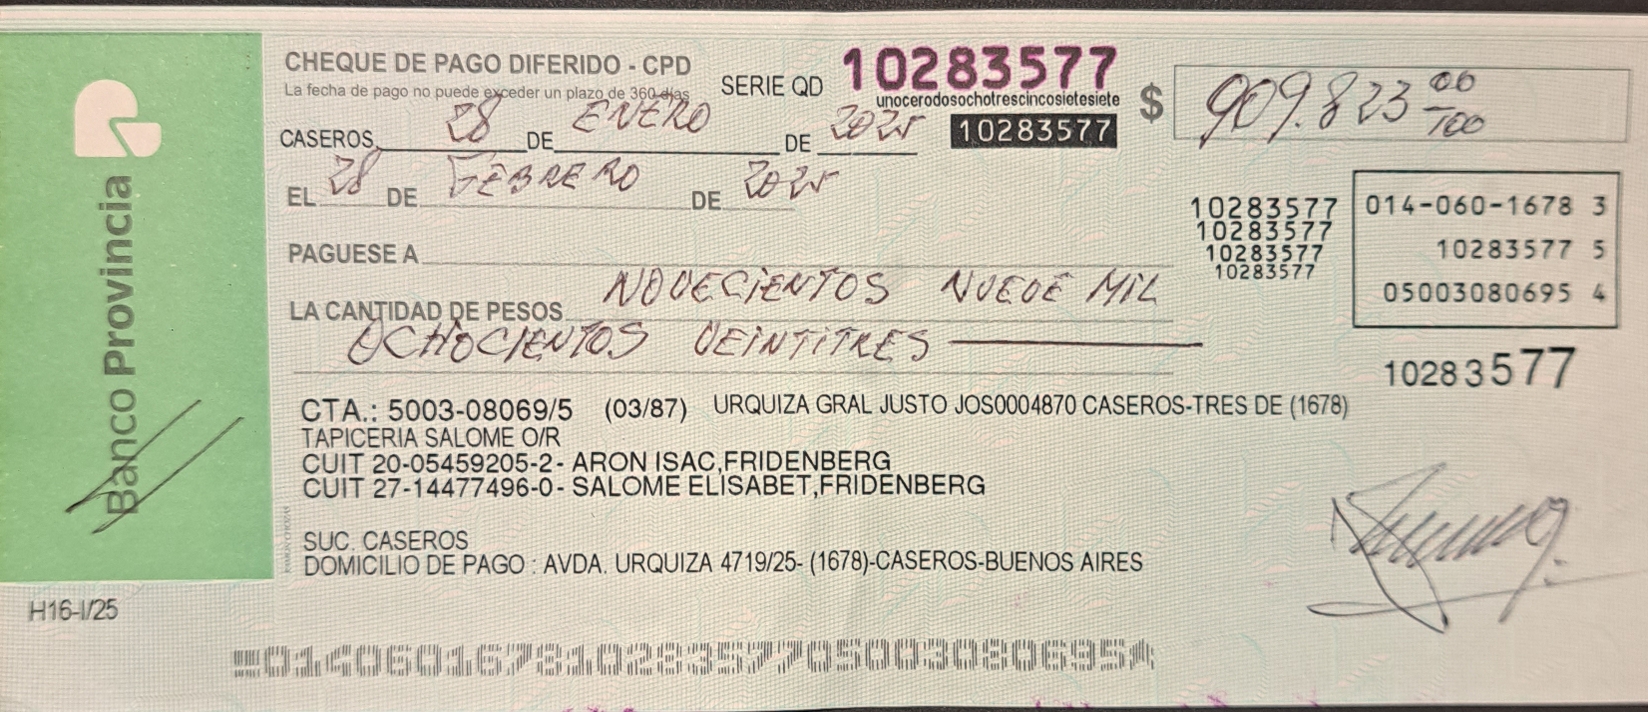 Banco Provincia
CHEQUE DE PAGO DIFERIDO - CPD
La fecha de pago no puede exceder un plazo de 360 días
SERIE QD 10283577
unocerodosochotrescincosietesiete
10283577
$ 909.823 00/100
CASEROS, 28 DE ENERO DE 2025
EL 28 DE FEBRERO DE 2025
PAGUESE A
10283577
10283577
10283577
10283577
014-060-1678 3
10283577 5
05003080695 4
LA CANTIDAD DE PESOS NOVECIENTOS NUEVE MIL
OCHOCIENTOS VEINTITRES
10283577
CTA.: 5003-08069/5 (03/87) URQUIZA GRAL JUSTO JOS0004870 CASEROS-TRES DE (1678)
TAPICERIA SALOME O/R
CUIT 20-05459205-2- ARON ISAC,FRIDENBERG
CUIT 27-14477496-0- SALOME ELISABET,FRIDENBERG
SUC. CASEROS
DOMICILIO DE PAGO : AVDA. URQUIZA 4719/25- (1678)-CASEROS-BUENOS AIRES
H16-I/25
01406016781028357705003080695